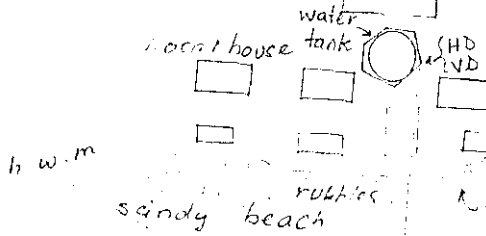 water
tank
house
HD
VD
h w.m
rubbles
sandy beach